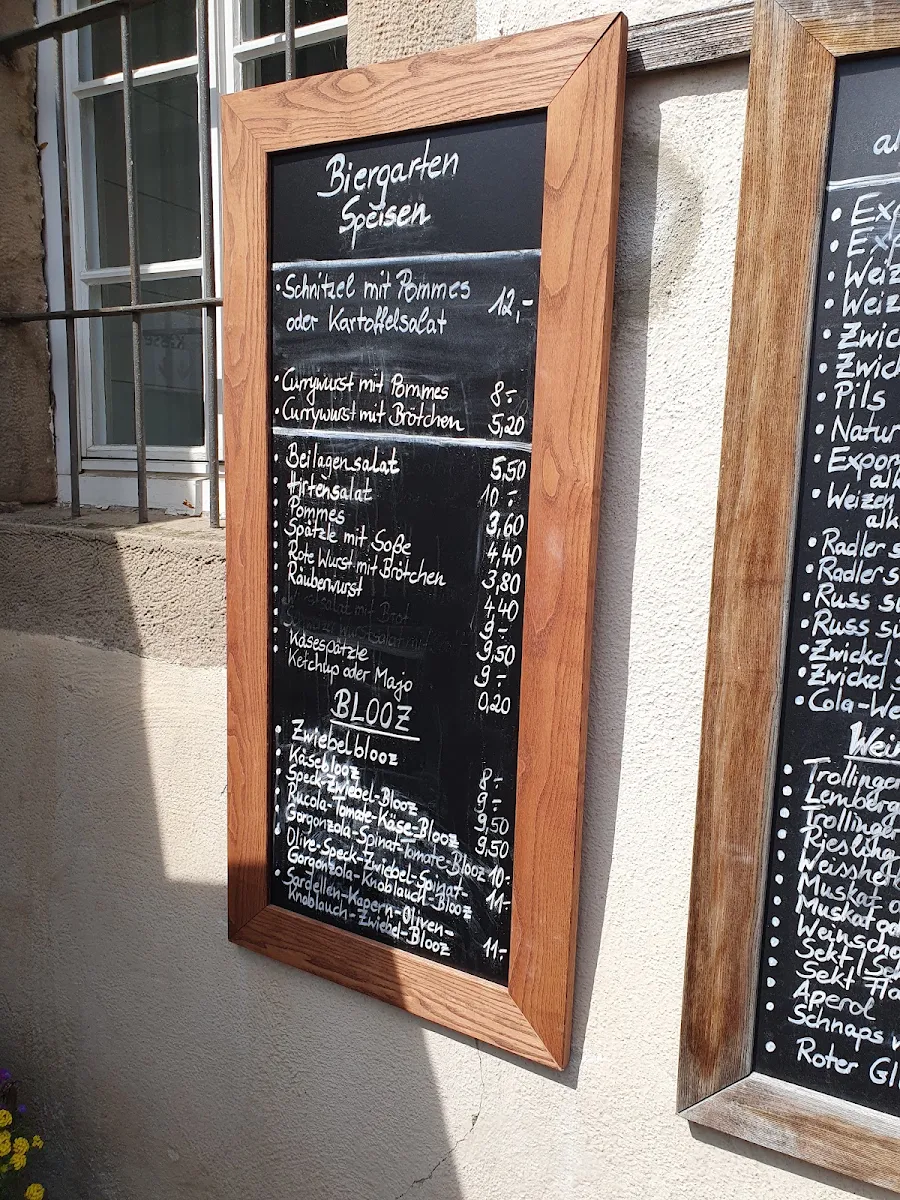 Biergarten
Speisen
• Schnitzel mit Pommes 12,-
oder Kartoffelsalat
• Currywurst mit Pommes 8.-
• Currywurst mit Brötchen 5,20
• Beilagensalat 5,50
• Hirtensalat 10.-
• Pommes 3,60
• Spätzle mit Soße 4,40
• Rote Wurst mit Brötchen 3,80
• Räuberwurst 4,40
• Wurstsalat mit Brot 9.-
9,50
• Käsespätzle 9.-
• Ketchup oder Majo 0,20
BLOOZ
• Zwiebelblooz 8.-
• Käseblooz 9.-
• Speck-Zwiebel-Blooz 9,50
• Rucola-Tomate-Käse-Blooz 9,50
• Gorgonzola-Spinat-Tomate-Blooz 10.-
• Olive-Speck-Zwiebel-Spinat-
Gorgonzola-Knoblauch-Blooz 11.-
• Sardellen-Kapern-Oliven-
Knoblauch-Zwiebel-Blooz 11.-
• Pils
• Radler s
• Radler s
• Russ sü
• Russ sü
• Zwickel s
• Zwickel s
• Cola-We
Wein
• Trollinger
• Lemberg
• Trollinger
• Riesling
• Weissher
• Muskat
• Muskat
• Weinscho
• Sekt
• Sekt
• Aperol
• Schnaps
• Roter Gl